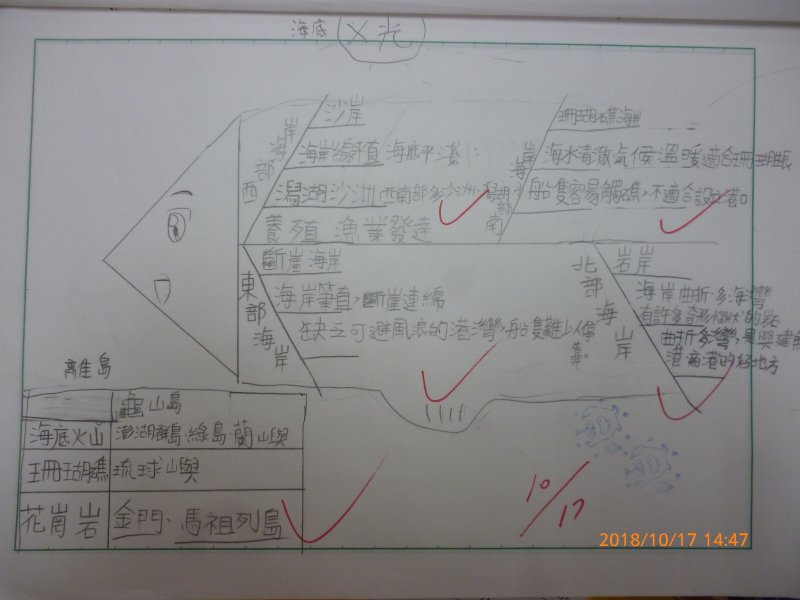 海底
火光
西部海岸
沙岸
海岸線平直 海底平淺:
潟湖沙洲 西南部多沙洲、潟湖
養殖 漁業發達
南部海岸
珊瑚礁海岸
海水清澈氣候溫暖適合珊瑚
船隻容易觸礁,不適合設立港口
東部海岸
斷崖海岸
海岸筆直,斷崖連綿
缺乏可避風浪的港灣,船隻難以停靠。
北部海岸
岩岸
海岸曲折多海灣
有許多奇形怪狀的
曲折多灣,是興建
港的好地方
離島
龜山島
海底火山 澎湖群島、綠島、蘭嶼
珊瑚礁 琉球嶼
花崗岩 金門、馬祖列島
10/17
2018/10/17 14:47